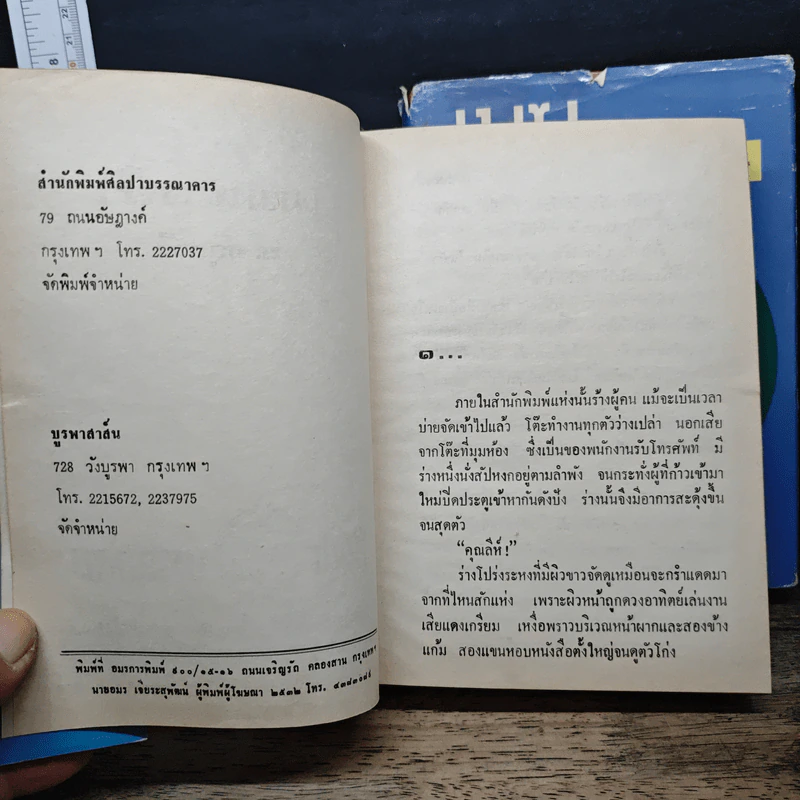 สำนักพิมพ์ศิลปาบรรณาคาร
79 ถนนอัษฎางค์
กรุงเทพ ฯ โทร. 2227037
จัดพิมพ์จำหน่าย
บูรพาสาส์น
728 วังบูรพา กรุงเทพ ฯ
โทร. 2215672, 2237975
จัดจำหน่าย
พิมพ์ที่ อมรการพิมพ์ ๔๐๐/๑๕-๑๖ ถนนเจริญรัถ คลองสาน กรุงเทพ ฯ
นายอมร เจียระสุพัฒน์ ผู้พิมพ์ผู้โฆษณา ๒๕๓๒ โทร.
๑...
ภายในสำนักพิมพ์แห่งนั้นร้างผู้คน แม้จะเป็นเวลา
บ่ายจัดเข้าไปแล้ว โต๊ะทำงานทุกตัวว่างเปล่า นอกเสีย
จากโต๊ะที่มุมห้อง ซึ่งเป็นของพนักงานรับโทรศัพท์ มี
ร่างหนึ่งนั่งสัปหงกอยู่ตามลำพัง จนกระทั่งผู้ที่ก้าวเข้ามา
ใหม่ปิดประตูเข้าหากันดังปัง ร่างนั้นจึงมีอาการสะดุ้งขึ้น
จนสุดตัว
“คุณลิห์!”
ร่างโปร่งระหงที่มีผิวขาวจัดดูเหมือนจะกรำแดดมา
จากที่ไหนสักแห่ง เพราะผิวหน้าถูกดวงอาทิตย์เล่นงาน
เสียแดงเกรียม เหงื่อพราวบริเวณหน้าผากและสองข้าง
แก้ม สองแขนหอบหนังสือตั้งใหญ่จนดูตัวโก่ง
8
21
22